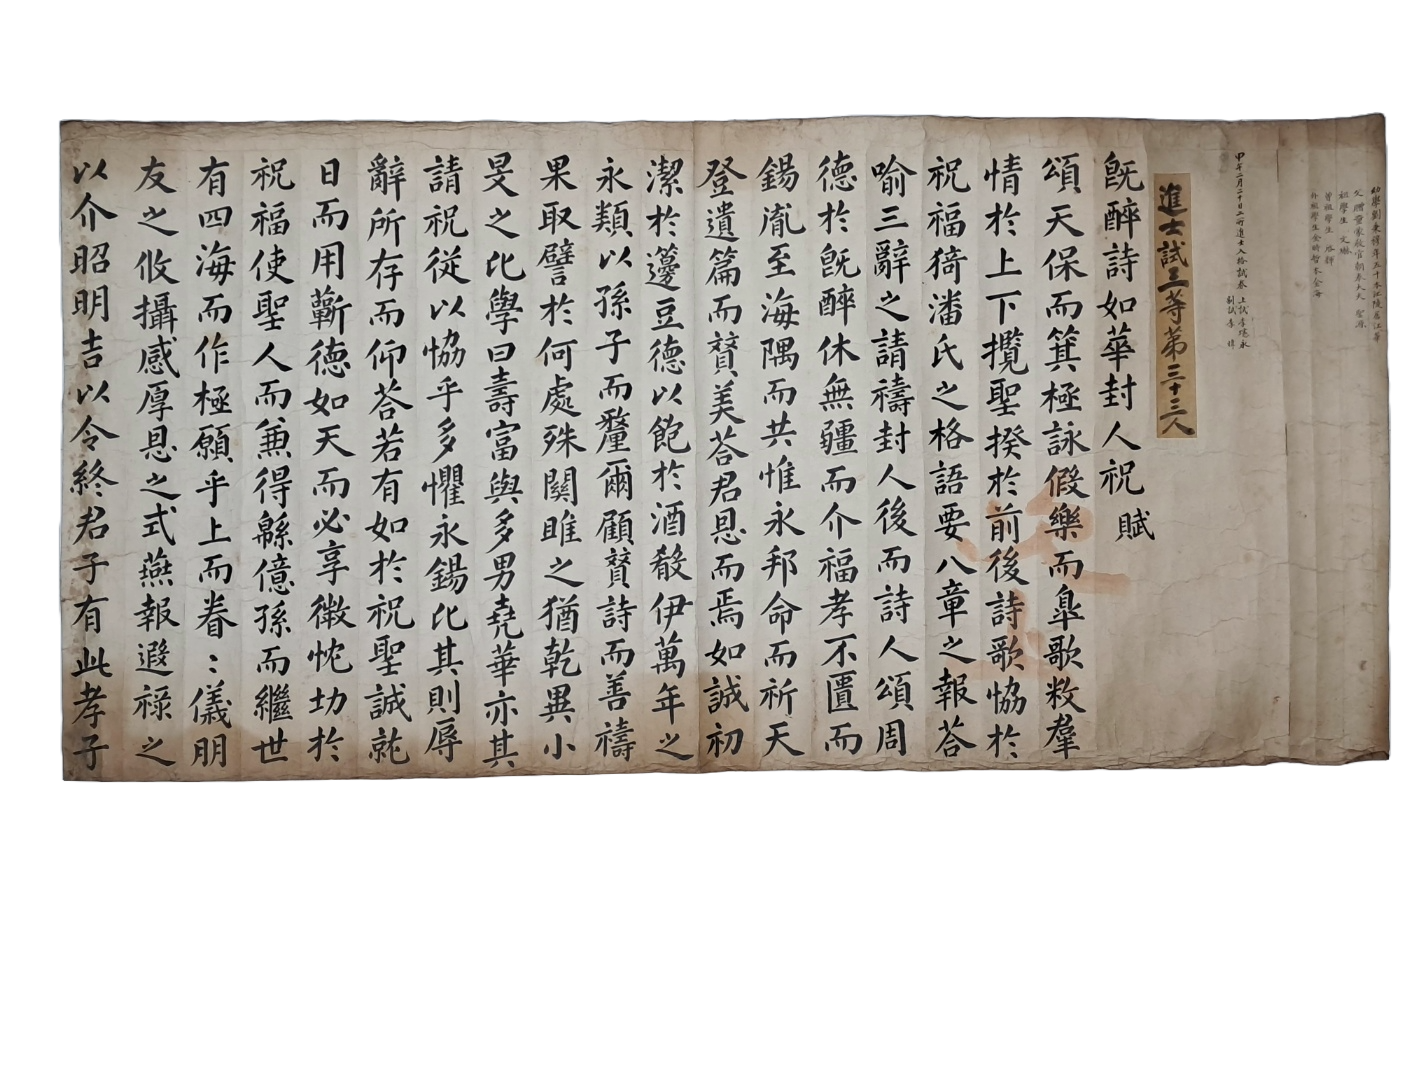 幼學劉東 年五十本江陵居江華
父贈童蒙敎官朝奉大夫 聖源
祖學生 文
曾祖學生
外祖學生金時哲本金海
甲午二月二十日二所進士入格試券 上試李 永
副試李
進士試三等第三十三人
旣醉詩如華封人祝賦
頌天保而箕極詠假樂而皐歌敉羣
情於上下攬聖揆於前後詩歌恊於
祝福猗潘氏之格語要八章之報荅
喻三辭之請禱封人後而詩人頌周
德於旣醉休無疆而介福孝不匱而
錫胤至海隅而共惟永邦命而祈天
登遺篇而賛美荅君恩而焉如誠初
潔於籩豆德以飽於酒殽伊萬年之
永類以孫子而釐爾顧賛詩而善禱
果取譬於何處殊關雎之猶乾異小
旻之比學曰壽富與多男堯華亦其
請祝従以恊乎多懼永錫比其則辱
辭所存而仰荅若有如於祝聖誠就
日而用蘄德如天而必享徵忱切於
祝福使聖人而兼得緜億孫而繼世
有四海而作極願乎上而眷〻儀明
友之攸攝感厚恩之式燕報遐祿之
以介昭明吉以令終君子有此孝子